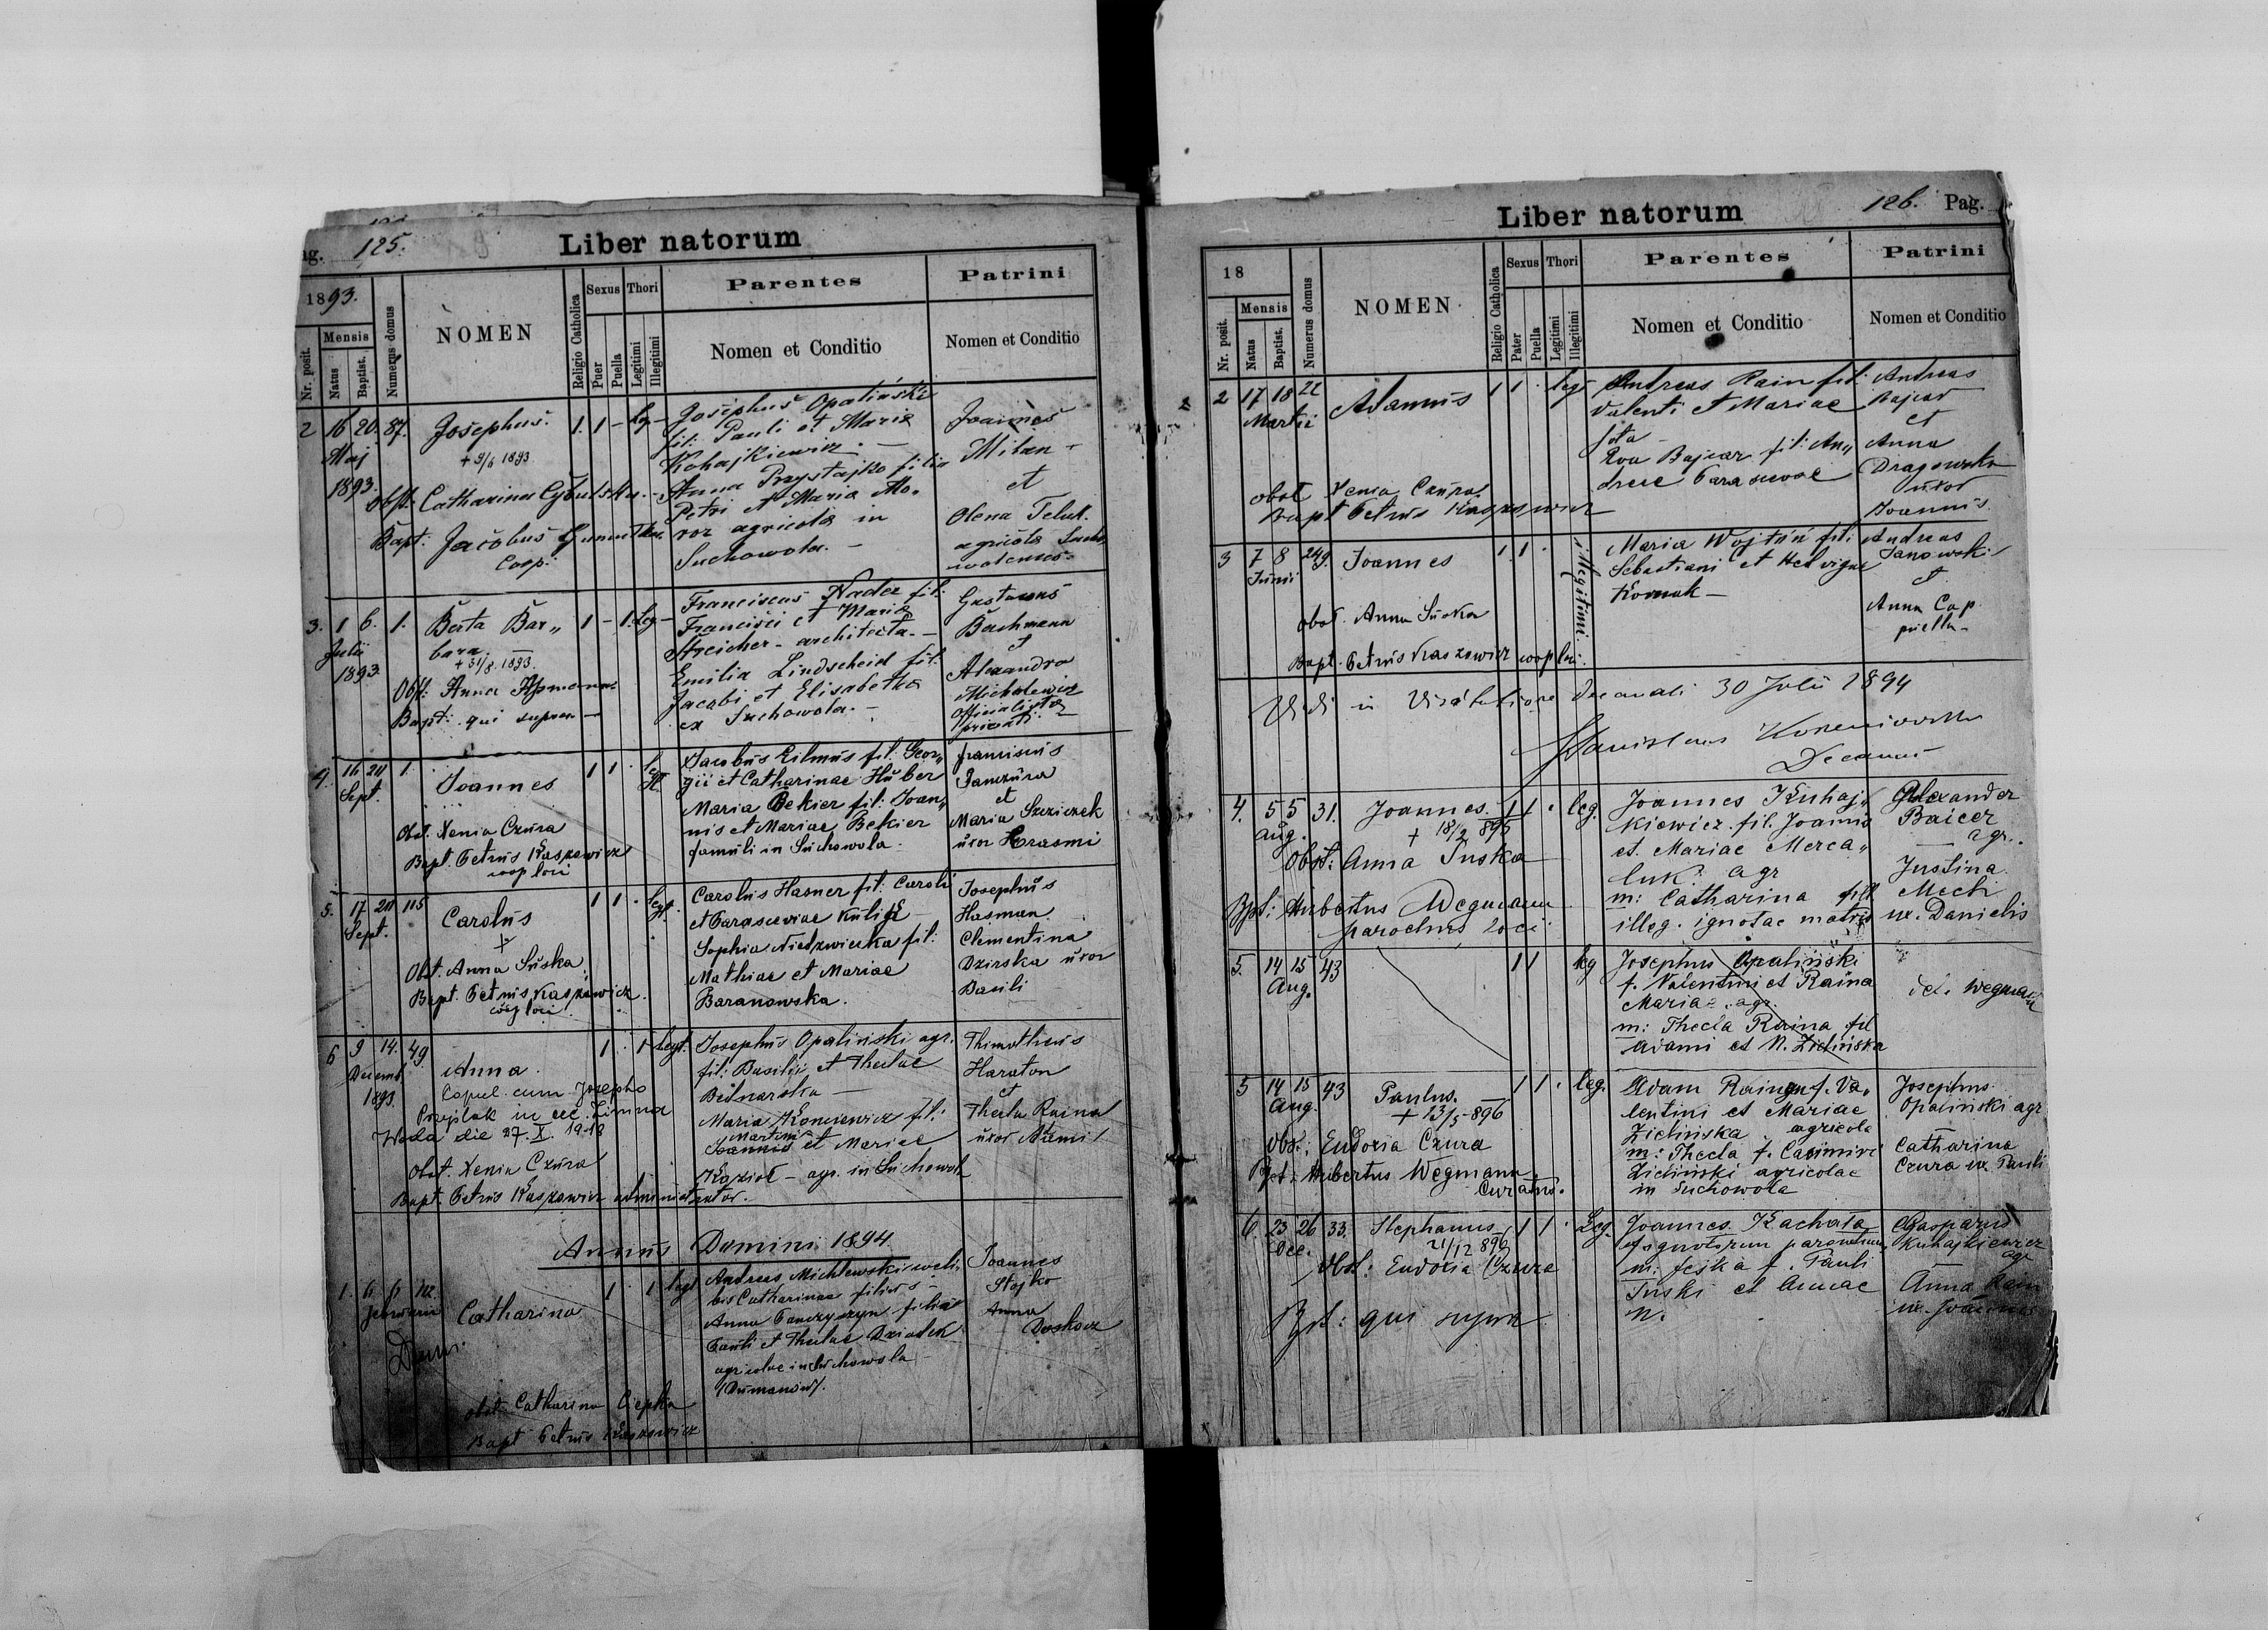 125.
Liber natorum
1893.
Nr. posit.
Mensis
Natus
Baptist.
Numerus domus
NOMEN
Religio Catholica
Sexus
Puer
Puella
Thori
Legitimi
Illegitimi
Parentes
Nomen et Conditio
Patrini
Nomen et Conditio
2 16 20. 87. Josephus. 1. 1 - leg -
Maj
1893.
+ 9/6 1893
Obst. Catharina
Bapt. Jacobus
Coop.
Josephus Opaliński
fil: Pauli et Maria
Kohajkiewicz. -
Anna Przystajko filia
Petri et Maria Mo-
roz agricola in
Suchowola. -
Joannes
Milan -
et
Olena Teluk.
agricola
3. 1 6. 1. Berta Bar„ 1 - 1. Leg -
Julii
1893.
bara.
+ 31/8. 1893.
Obst: Anna
Bapt: qui supra -
Franciscus Nader fil:
Francisci et Maria
Streicher - architecta. -
Emilia Lindscheid fil.
Jacobi et Elisabetha
ex Suchowola. -
Gustavus
Bachmann
et
Alexandra
Michalewicz
officialista
privati. -
4. 16 24 1. Joannes 1 1 .
Sept.
Obst. Xenia Czura
Bapt. Petrus Kaszowicz
coop loci
Jacobus Lilmus fil: Geor„
gii et Catharinae Huber
Maria Bekier fil: Joan„
nis et Mariae Bekier
famuli in Suchowola.
Franciscus
Panczura
et
Maria Szcziczek
uxor Erasmi
5. 17 24 115 Carolus 1 1 . Legt.
Sept.
+
Obst. Anna Suska
Bapt. Petrus Kaszowicz.
coop loci
Carolus Hasner fil: Caroli
et Parasceviae
Sophia Niedzwiecka fil:
Mathiae et Mariae
Baranowska.
Josephus
Hasman
Clementina
Dzirska uxor
Basili
6 9 14. 49. Anna. 1 . 1 Legt.
Decemb.
1893.
Copul. cum Josepho
in eccl. Zimna
Woda die 27. X. 1918
Obst. Xenia Czura
Bapt. Petrus Kaszowicz administrator.
Josephus Opaliński agr.
fil: Basilii et Theclae
Bednarska -
Maria Koncewicz fil:
Martini
Joannis et Mariae
Kozioł - agr. in Suchowola
Thimotheus
Haraton
et
Thecla Raina
uxor
Annus Domini 1894.
1. 6 6 Catharina 1 . 1 legt
Januarii
Obst. Catharina Ciepka
Bapt Petrus Kaszowicz
Andreas Michlewski
Catharinae filius -
Anna filia
Pauli et Theclae Dziadek
agricolae in Suchowola -
Joannes
Stojko
Anna
Doskocz
Liber natorum
126. Pag.
18
Nr. posit.
Mensis
Natus
Baptist.
Numerus domus
NOMEN
Religio Catholica
Sexus
Pater
Puella
Thori
Legitimi
Illegitimi
Parentes
Nomen et Conditio
Patrini
Nomen et Conditio
2 17 18 22 Adamus 1 1 . leg
Martii
obst Xenia Czura
Bapt Petrus Kaszowicz
Andreas Rain fil:
Valenti et Mariae
Eva Bajcar fil: An„
dreae
Andreas
Bajcar
et
Anna
Dragowska
uxor
Joannis.
3 7 8 249. Joannes 1 1 . illegitimi
Junii
obst. Anna Suska
Bapt. Petrus Kaszowicz coop loci.
Maria Wojtun fil:
Sebastiani et Hedvigae
Kornak -
Andreas
Janowski
et
Anna Cap
puella -
Vidi in Visitatione decanali 30 Julii 1894
Stanislaus
Decanus
4. 5 5 31. Joannes. 1 1 . leg.
Aug.
+ 18/2 895
Obst: Anna Suska
Bpt: Hubertus Wegmann
parochus loci
Joannes Kuhaj„
kiewicz fil. Joannis
et Mariae Merca„
luk. agr
m: Catharina fil
illeg. ignotae matris
Alexander
Baicer
agr.
Justina
Mech
ux. Danielis
5. 14 15 43 1 1 leg
Aug.
Josephus Opaliński
f. Valentini et Raina
Mariae agr.
m: Thecla Raina fil
Adami et N. Zielińska
del. Wegmann
5 14 15 43 Paulus. 1 1 . leg.
Aug.
+ 13/5 - 896
Obst: Eudoxia Czura
Bpt: Hubertus Wegmann
Curatus.
Adam Raina f. Va-
lentini et Mariae
Zielińska agricola
m: Thecla f. Casimiri
Zieliński agricolae
in Suchowola
Josephus
Opaliński agr
Catharina
Czura ux Pauli
6. 23 26 33. Stephanus 1 1 . Leg.
Dec.
21/12 896
Obst: Eudoxia Czura
Bpt: qui supra
Joannes Kachała
ignotorum parentum
m: Feśka f. Pauli
Suski et Annae
N.
Gasparus
Kuhajkiewicz
agr
Anna Rain
ux. Joannis